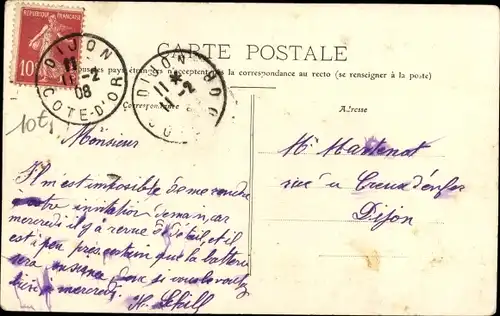 RÉPUBLIQUE FRANÇAISE
10
DIJON
11
11-2
08
COTE-D'OR
DIJON
11 *
CARTE POSTALE
Tous les pays étrangers n'acceptent pas la correspondance au recto (se renseigner à la poste)
Correspondance
Adresse
10 ct
Monsieur
Il m'est impossible de me rendre
à votre invitation demain, car
mercredi il y a revue de détail, et il
est à peu près certain que la batterie
sera donc si vous le voulez
bien à mercredi.
Mr Martenot
rue Creux d'enfer
Dijon